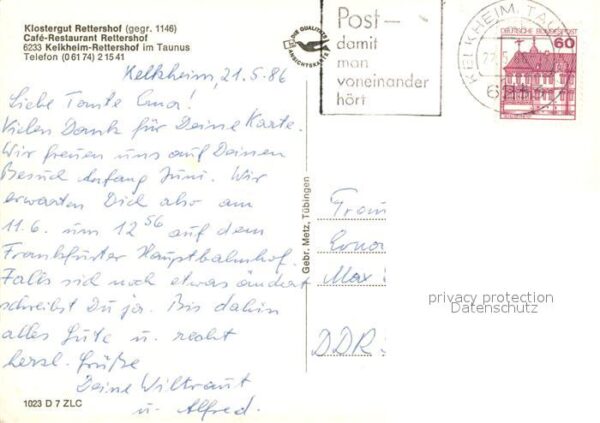 Klostergut Rettershof (gegr. 1146)
Café-Restaurant Rettershof
6233 Kelkheim-Rettershof im Taunus
Telefon (0 61 74) 2 15 41
DIE QUALITÄTS
ANSICHTSKARTE
Post –
damit
man
voneinander
hört
KELKHEIM, TAUN
DEUTSCHE BUNDESPOST
60
Kelkheim, 21.5.86
Liebe Tante Erna!
Vielen Dank für Deine Karte.
Wir freuen uns auf Deinen
Besuch Anfang Juni. Wir
erwarten Dich also am
11.6. um 12 56 auf dem
Frankfurter Hauptbahnhof.
Falls sich noch etwas ändert
schreibst Du ja. Bis dahin
alles Gute u. recht
herzl. Grüße
Deine Wiltraut
u. Alfred.
Gebr. Metz, Tübingen
Frau
Erna
Max
DDR
privacy protection
Datenschutz
1023 D 7 ZLC